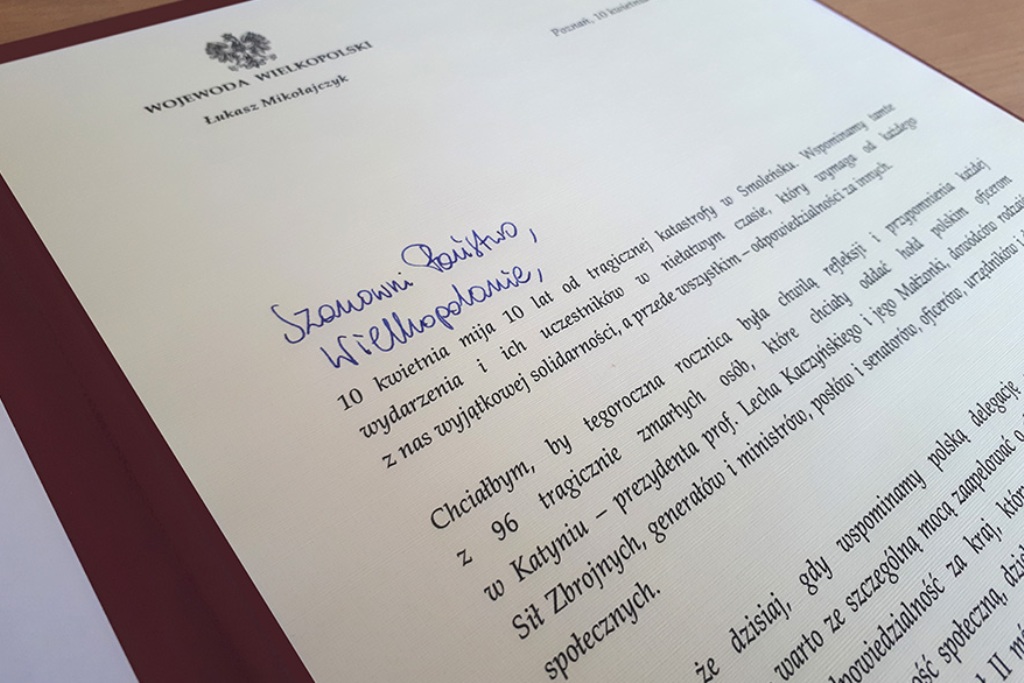 WOJEWODA WIELKOPOLSKI
Łukasz Mikołajczyk
Poznań, 10 kwietnia
Szanowni Państwo,
Wielkopolanie,
10 kwietnia mija 10 lat od tragicznej katastrofy w Smoleńsku. Wspominamy tamte
wydarzenia i ich uczestników w niełatwym czasie, który wymaga od każdego
z nas wyjątkowej solidarności, a przede wszystkim – odpowiedzialności za innych.
Chciałbym, by tegoroczna rocznica była chwilą refleksji i przypomnienia każdej
z 96 tragicznie zmarłych osób, które chciały oddać hołd polskim oficerom
w Katyniu – prezydenta prof. Lecha Kaczyńskiego i jego Małżonki, dowódców rodzajó
Sił Zbrojnych, generałów i ministrów, posłów i senatorów, oficerów, urzędników i
społecznych.
że dzisiaj, gdy wspominamy polską delegację
warto ze szczególną mocą zaapelować o
powiedzialność za kraj, któr
ość społeczną, dzia
II